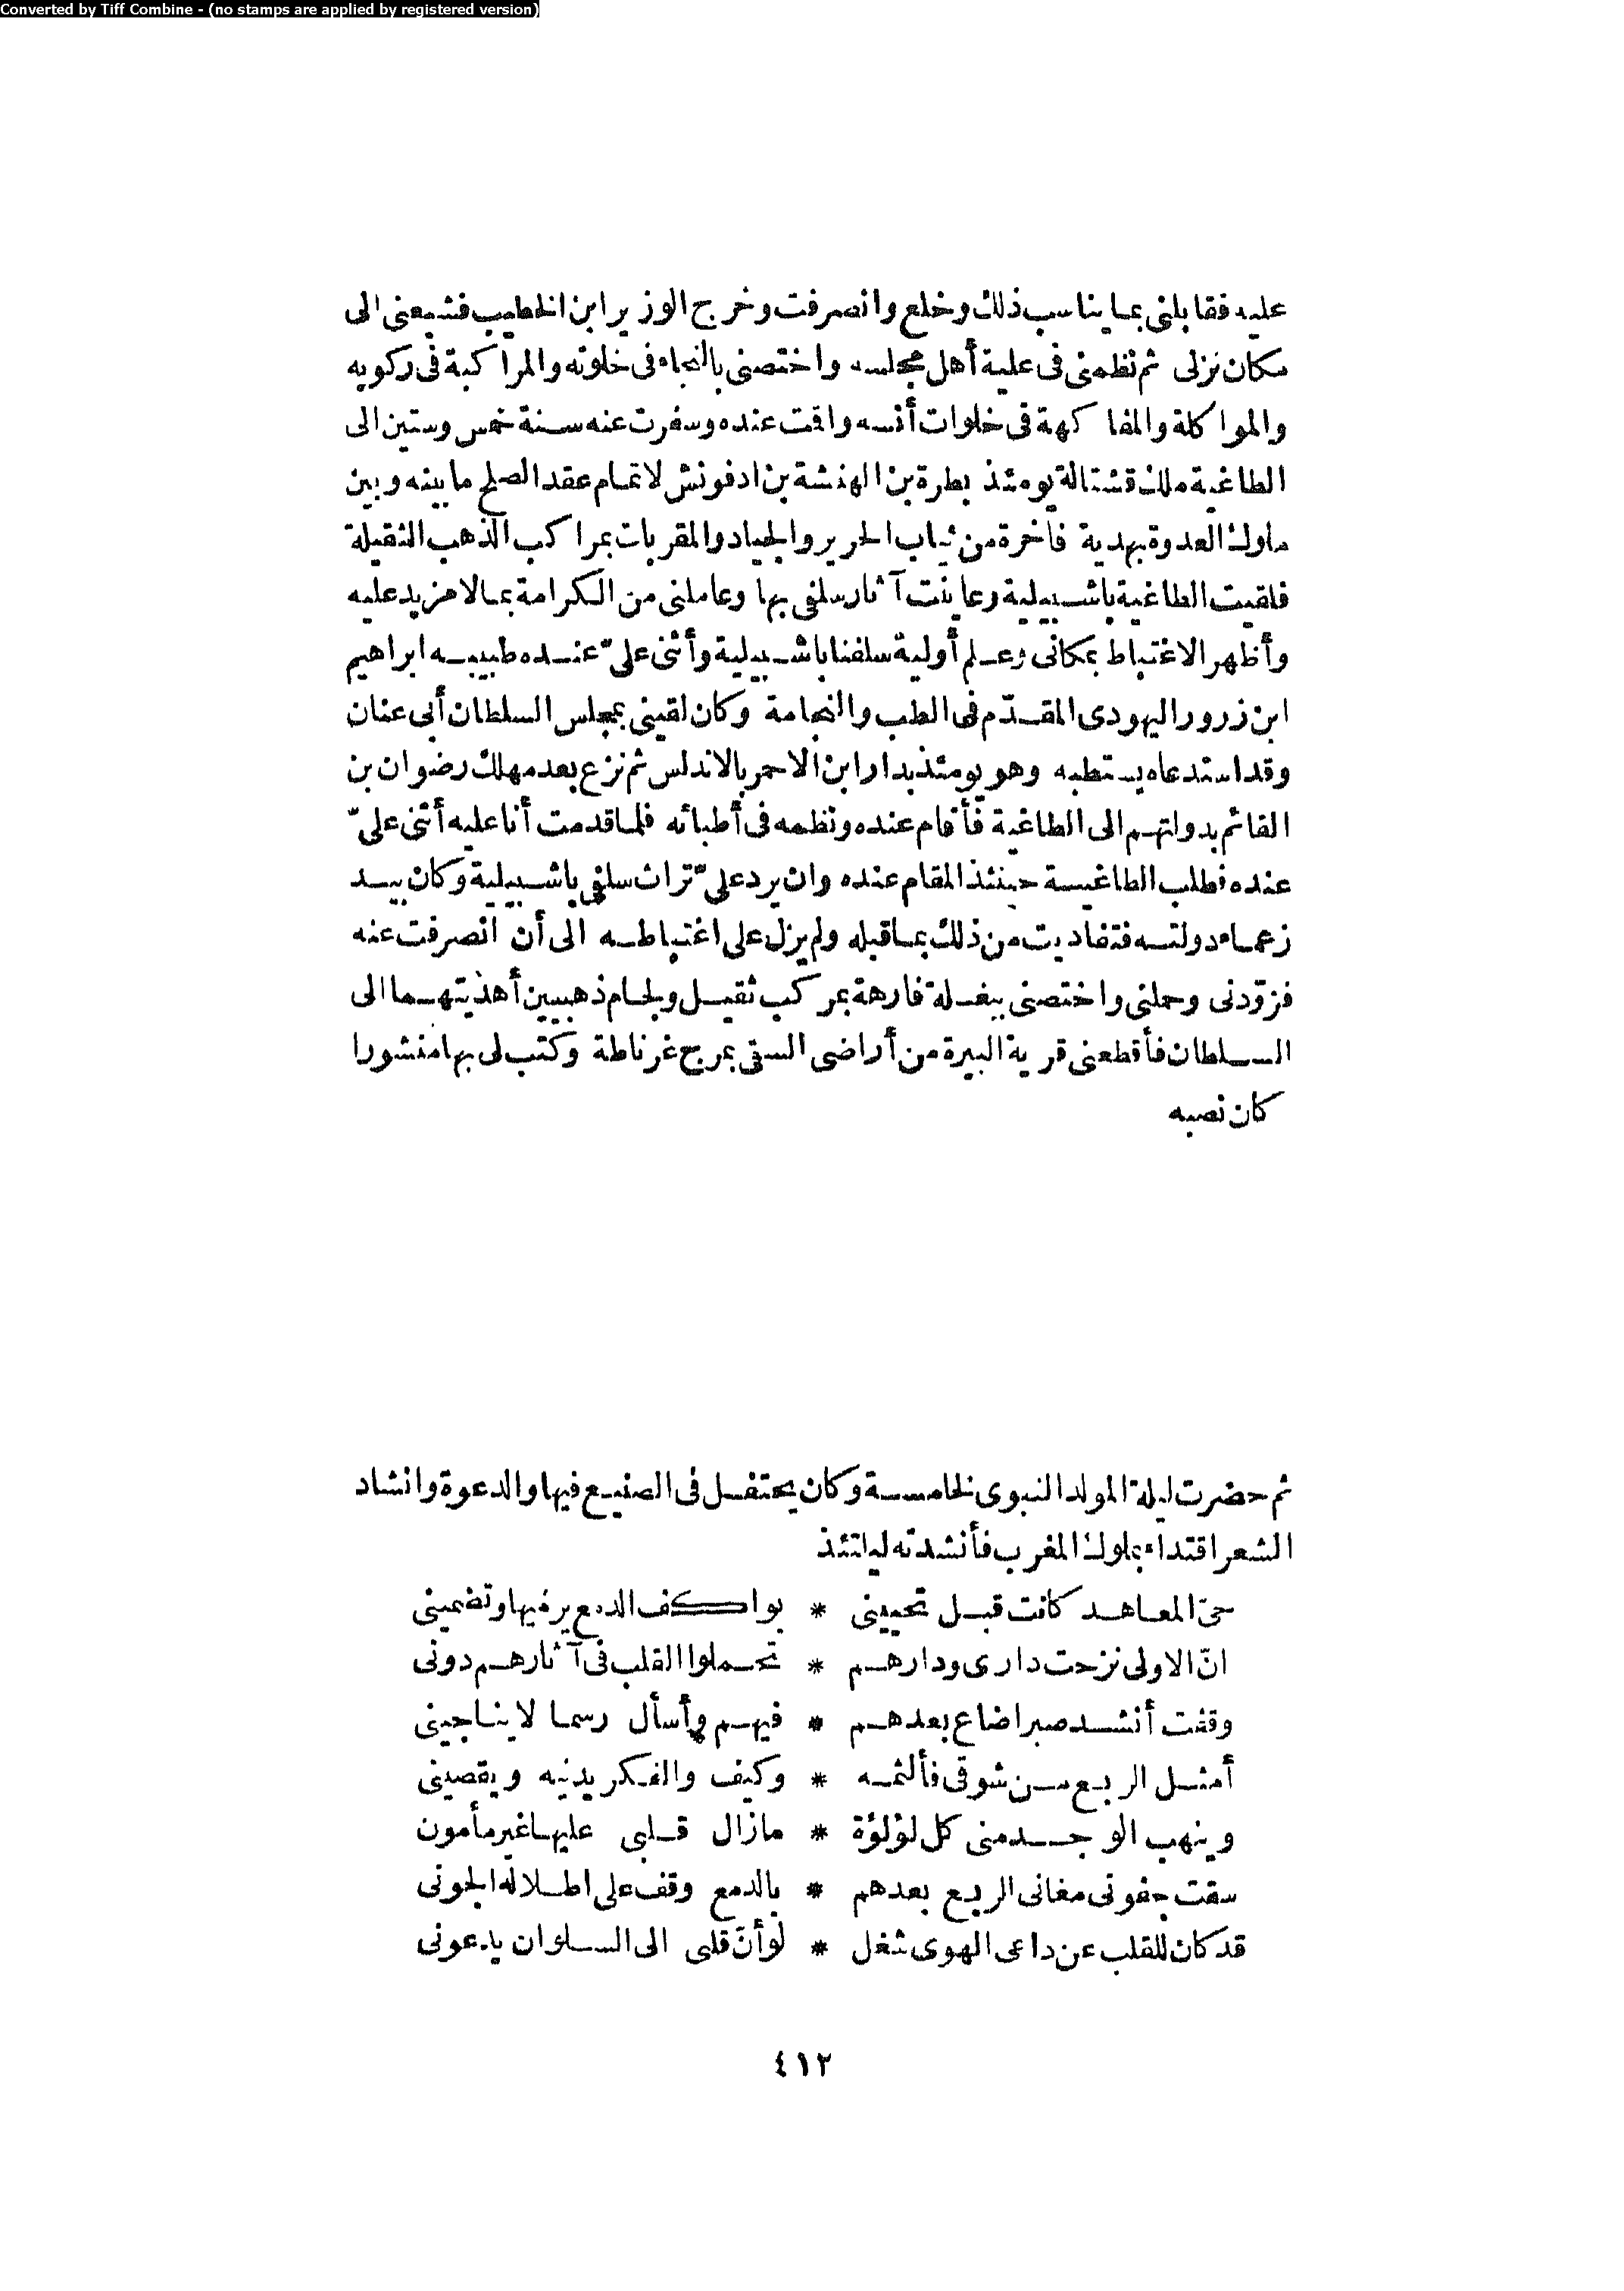 Converted by Tiff Combine - (no stamps are applied by registered version)
عليه فقابلنى بما يناسب ذلك وخلع وانصرفت وخرج الوزير ابن الخطيب فشيعنى الى
مكان نزلى ثم نظمنى فى علية أهل مجلسه واختصنى بالنجاء فى خلوته والمراكبة فى ركوبه
والمواكلة والمفاكهة فى خلوات أنسه واقت عنده وسفرت عنه سنة خمس وستين الى
الطاغية ملك قشتالة يومئذ بطرة بن الهنشة بن ادفونش لاتمام عقد الصلح ما بينه وبين
ملوك العدوة بهدية فاخرة من ثياب الحرير والجياد والمقربات بمراكب الذهب الثقيلة
فلقيت الطاغية باشبيلية وعاينت آثار سلفى بها وعاملنى من الكرامة بما لا مزيد عليه
وأظهر الاغتباط بمكانى وعلم أولية سلفنا باشبيلية وأثنى علىّ عنده طبيبه ابراهيم
ابن زرور اليهودى المقدّم فى الطب والنجامة وكان لقينى بمجلس السلطان أبى عنان
وقد استدعاه يستطبه وهو يومئذ بدار ابن الاحمر بالاندلس ثم نزع بعد مهلك رضوان بن
القائم بدولتهم الى الطاغية فأقام عنده ونظمه فى أطبائه فلما قدمت أنا عليه أثنى علىّ
عنده فطلب الطاغية حينئذ المقام عنده وان يرد علىّ تراث سلفى باشبيلية وكان بيد
زعماء دولته فتفاديت من ذلك بما قبله ولم يزل على اغتباطه الى أن انصرفت عنه
فزوّدنى وحملنى واختصنى ببغلة فارهة بمركب ثقيل ولجام ذهبيين أهديتهما الى
السلطان فأقطعنى قرية البيرة من أراضى السقى بمرج غرناطة وكتب لى بها منشورا
كان نصبه
ثم حضرت ليلة المولد النبوى لخامسة وكان يحتفل فى الصنيع فيها والدعوة وانشاد
الشعر اقتداء بملوك المغرب فأنشدته ليلتئذ
حىّ المعاهد كانت قبل تحيينى * بواكف الدمع يرفيها وتضمينى
انّ الاولى نزحت دارى ودارهم * تحملوا القلب فى آثارهم دونى
وقفت أنشد صبرا ضاع بعدهم * فيهم وأسأل رسما لا يناجينى
أمثل الربع من شوقى فألثمه * وكيف والفكر يدنيه ويقصينى
وينهب الوجد منى كل لؤلؤة * مازال قلبى عليها غير مأمون
سقت جفونى مغانى الربع بعدهم * بالدمع وقف على اطلاله الجونى
قد كان للقلب عن داعى الهوى شغل * لو أنّ قلبى الى السلوان يدعونى
٤١٢